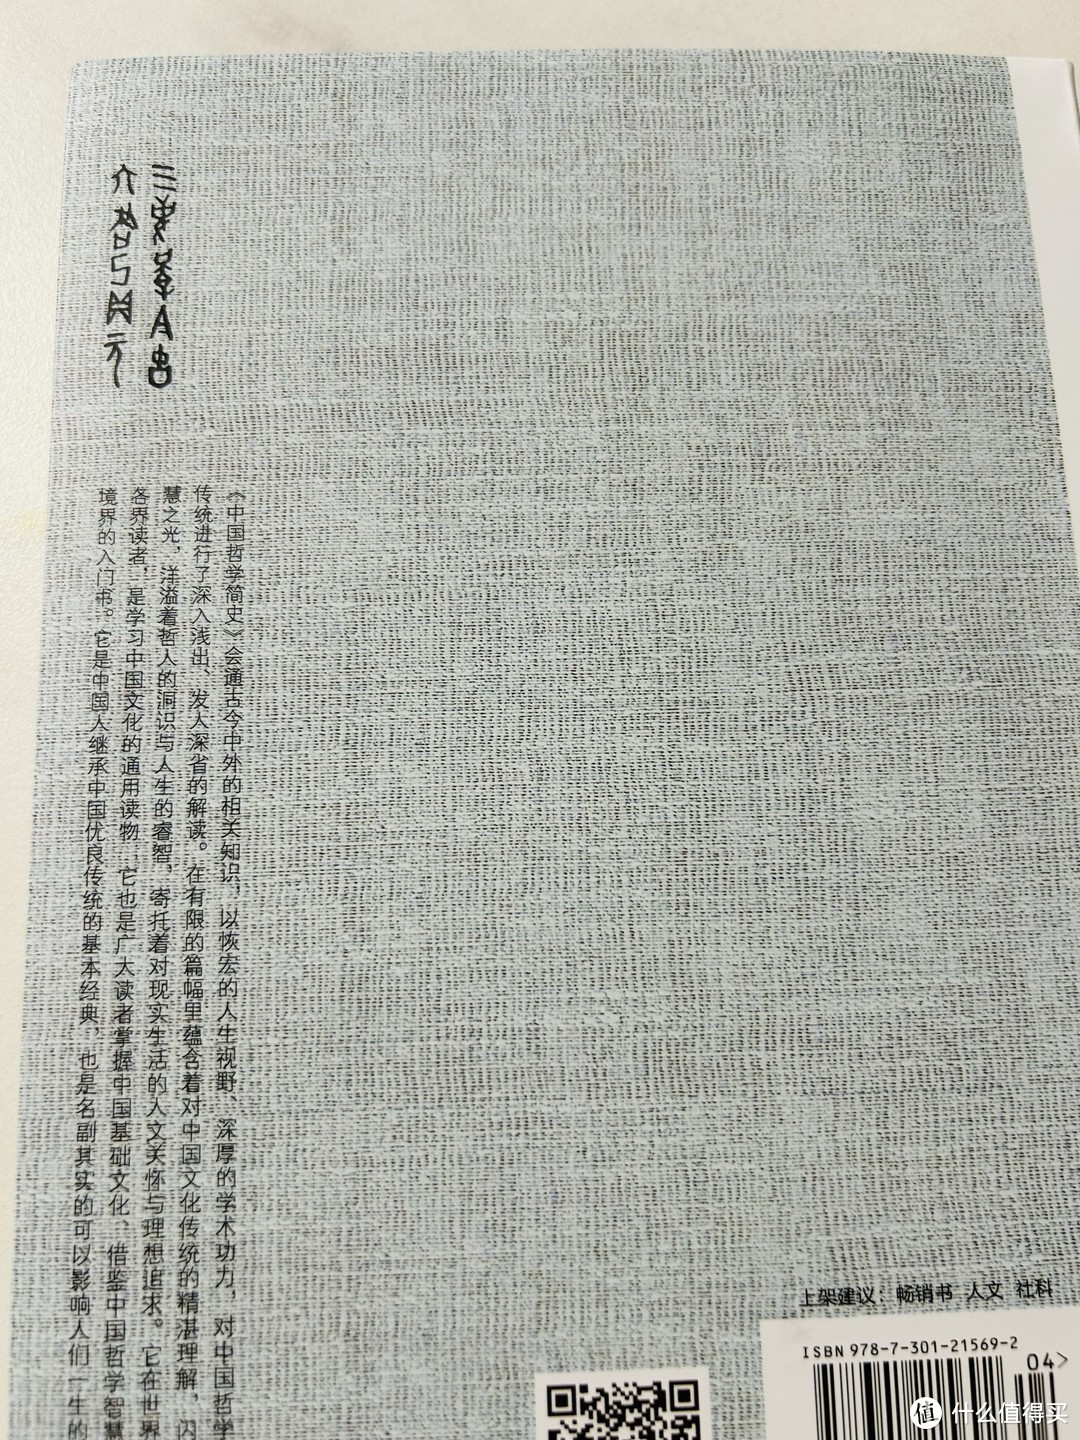 《中国哲学简史》会通古今中外的相关知识，以恢宏的人生视野、深厚的学术功力，对中国哲学
传统进行了深入浅出、发人深省的解读。在有限的篇幅里蕴含着对中国文化传统的精湛理解，闪
慧之光，洋溢着哲人的洞识与人生的睿智，寄托着对现实生活的人文关怀与理想追求。它在世界
各界读者，是学习中国文化的通用读物；它也是广大读者掌握中国基础文化、借鉴中国哲学智慧
境界的入门书。它是中国人继承中国优良传统的基本经典，也是名副其实的可以影响人们一生的
上架建议：畅销书 人文 社科
ISBN 978-7-301-21569-2
04>
值 什么值得买